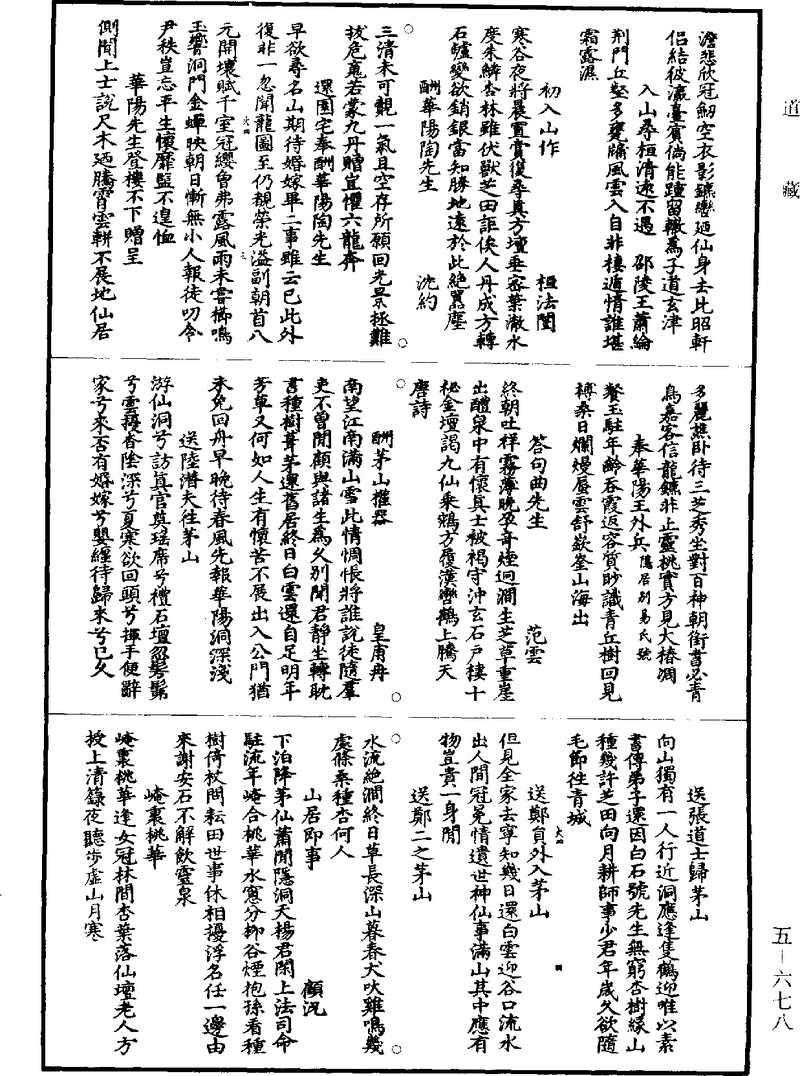 道藏
澹悲欣冠劒空衣影鑣轡廼仙身去此昭軒
侶結彼瀛臺賓倘能踵留轍爲子道玄津
入山尋桓清遠不遇　邵陵王蕭綸
荆門丘壑多甕牖風雲入自非棲遁情誰堪
霜露濕
初入山作　桓法闓
寒谷夜將晨置賞復尋真方壇垂容葉澈水
度朱鱗杏林雖伏獸芝田詎俟人丹成方轉
石爐變欲銷銀當知勝地遠於此絶囂塵
酬華陽陶先生　沈約
三清未可覿一氣且空存所願回光景拯難
拔危㝠若蒙九丹贈豈懼六龍奔
還園宅奉酬華陽陶先生
早欲尋名山期待婚嫁畢二事雖云已此外
復非一忽聞龍圖至仍覩榮光溢副朝首八
元開壤賦千室冠纓曾弗露風雨未嘗櫛鳴
玉響洞門金蟬映朝日慚無小人報徒叨令
尹秩豈忘平生懷靡盬不遑恤
華陽先生登樓不下贈呈
側聞上士說尺木廼騰霄雲軿不展地仙居
多麗譙卧待三芝秀坐對百神朝銜書必青
鳥嘉客信龍鑣非止靈桃實方見大椿凋
奉華陽王外兵隱居别易氏號
餐玉駐年齡吞霞返容質眇識青丘樹回見
榑桑日爛熳蜃雲舒嶔崟山海出
答句曲先生　范雲
終朝吐祥霧薄晚孕奇煙迴澗生芝草重崖
出醴泉中有懷真士被褐守沖玄石戸棲十
袐金壇謁九仙乘鵷方履漢轡鶴上騰天
唐詩
酬茅山權器　皇甫冉
南望江南滿山雪此情惆悵將誰說徒隨羣
吏不曾閒顧與諸生爲久别聞君靜坐轉耽
書種樹葺茅還舊居終日白雲還自足明年
芳草又何如人生有懷苦不展出入公門猶
未免回舟早晚待春風先報華陽洞深淺
送陸潛夫往茅山
游仙洞兮訪真官奠瑶席兮禮石壇忽髣髴
兮雲擾杳陰深兮夏寒欲回頭兮揮手便辭
家兮來否有婚嫁兮嬰纏待歸來兮已久
送張道士歸茅山
向山獨有一人行近洞應逢隻鶴迎唯以素
書傳弟子還因白石號先生無窮杏樹緣山
種幾許芝田向月耕師事少君年歲久欲隨
毛節徃青城
送鄭員外入茅山
但見全家去寧知幾日還白雲迎谷口流水
出人間冠冕情遺世神仙事滿山其中應有
物豈貴一身閒
送鄭二之茅山
水流絶澗終日草長深山暮春犬吠雞鳴幾
處條桑種杏何人
山居即事　顧況
下泊降茅仙蕭閒隱洞天楊君閑上法司命
駐流年崦合桃華水窓分栁谷煙抱孫看種
樹倚杖問耘田世事休相擾浮名任一邊由
來謝安石不解飲靈泉
崦裏桃華
崦裏桃華逢女冠林間杏葉落仙壇老人方
授上清籙夜聽步虚山月寒
五—六七八